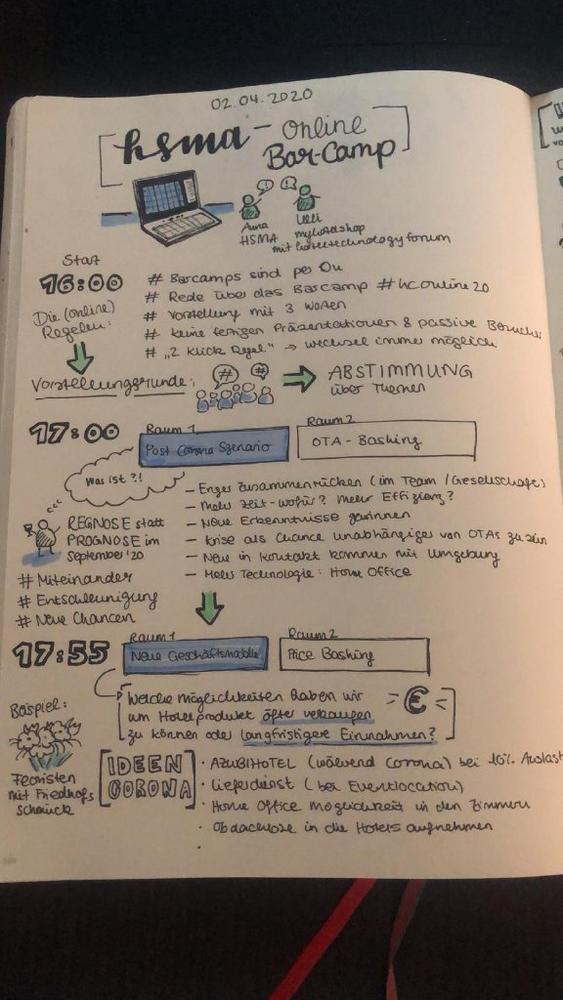 02.04.2020
hsma - Online
Bar-Camp
Anna
HSMA
Ulli
myhotelshop
mit hoteltechnologyforum
Start
16:00
Die (online)
Regeln:
# Barcamps sind per Du
# Rede über das Barcamp #hconline20
# Vorstellung mit 3 Worten
# keine fertigen Präsentationen & passive Besucher
# „2 Klick Regel" → wechsel immer möglich
Vorstellungsrunde:
# #
ABSTIMMUNG
über Themen
17:00
Raum 1
Post Corona Szenario
Raum 2
OTA - Bashing
Was ist ?!
REGNOSE statt
PROGNOSE im
September '20
# Miteinander
# Entschleunigung
# Neue Chancen
- Enger zusammenrücken (im Team / Gesellschaft)
- Mehr Zeit - wofür? Mehr Effizienz?
- Neue Erkenntnisse gewinnen
- Krise als Chance unabhängiger von OTAs zu sein
- Neu in Kontakt kommen mit Umgebung
- Mehr Technologie: Home Office
17:55
Raum 1
Neue Geschäftsmodelle
Raum 2
Price Bashing
Welche Möglichkeiten haben wir
um Hotelprodukt öfter verkaufen
zu können oder langfristigere Einnahmen?
€
Beispiel:
Floristen
mit Friedhofs
schmuck
IDEEN
CORONA
· AZUBIHOTEL (während Corona) bei 10% Auslast
· Lieferdienst (bei Eventlocation)
· Home Office Möglichkeit in den Zimmern
· Obdachlose in die Hotels aufnehmen
·